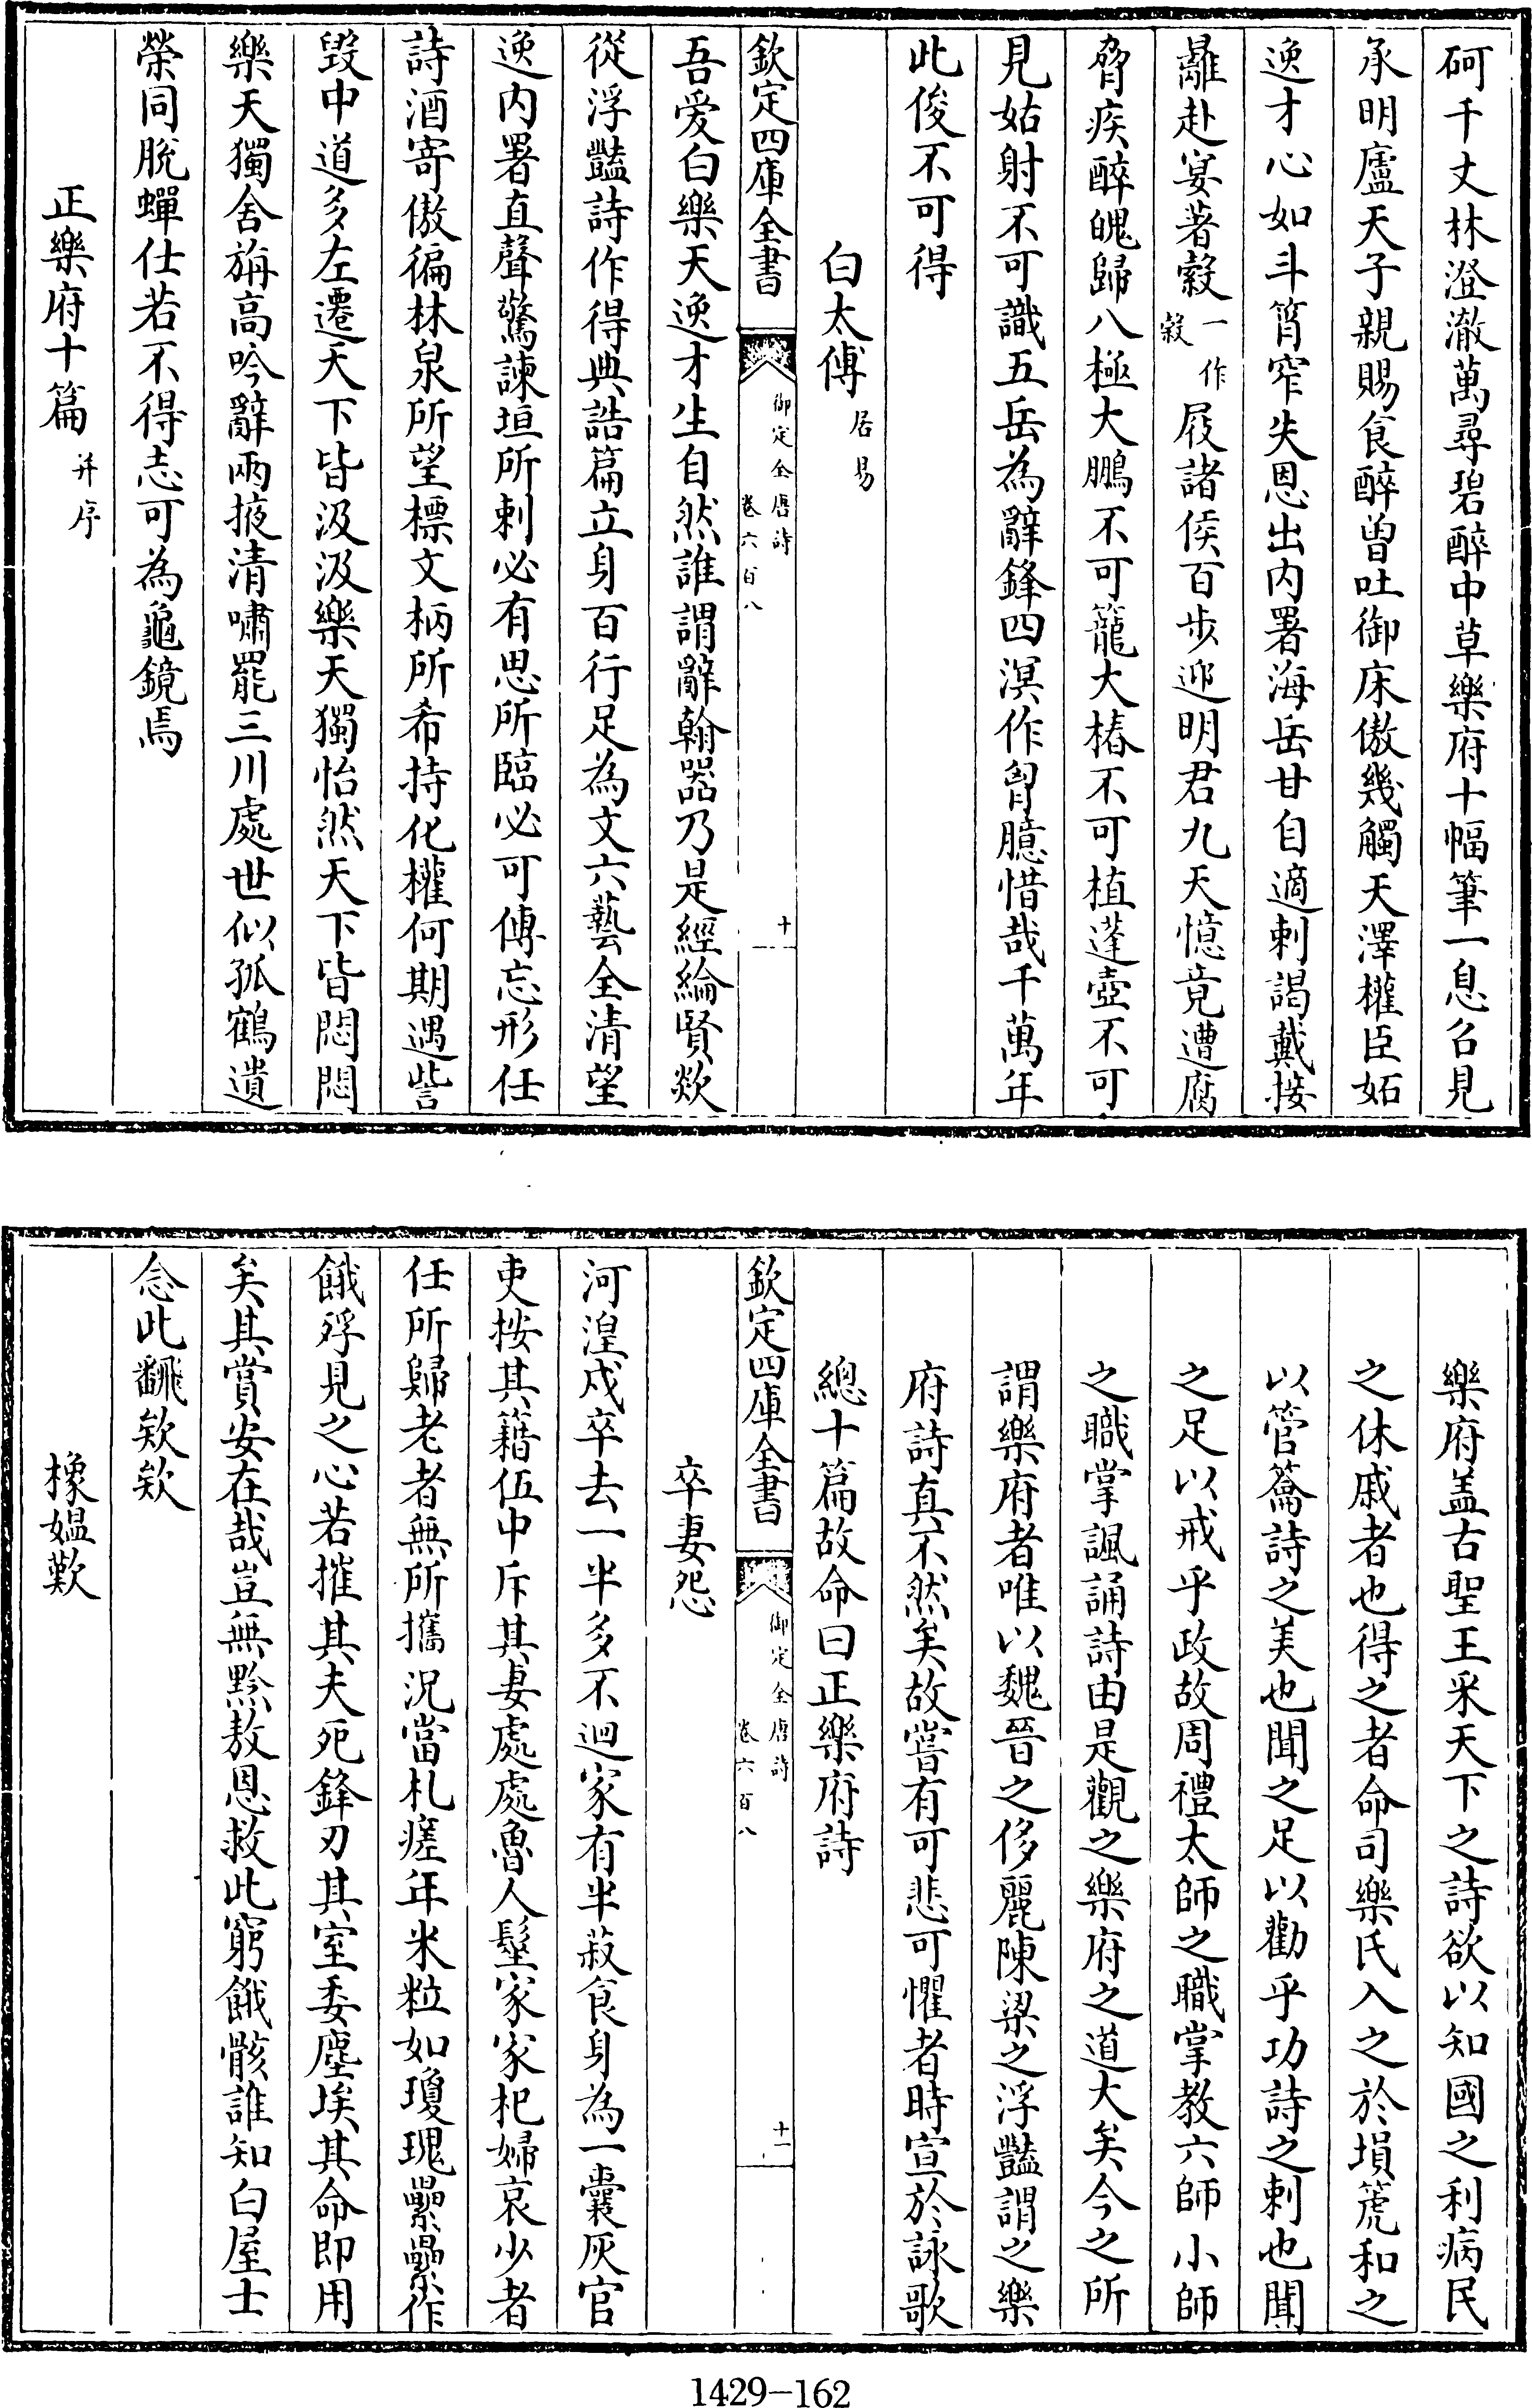 砢千丈林澄澈萬尋碧醉中草樂府十幅筆一息召見
承明廬天子親賜食醉曽吐御床傲幾觸天澤權臣妬
逸才心如斗筲窄失恩出内署海岳甘自適刺謁戴接
䍦赴宴著縠一作穀屐諸侯百步迎明君九天憶竟遭腐
脅疾醉魄歸八極大鵬不可籠大椿不可植蓬壺不可
見姑射不可識五岳為辭鋒四溟作胷臆惜哉千萬年
此俊不可得
白太傅居易
欽定四庫全書 御定全唐詩 卷六百八 十
吾愛白樂天逸才生自然誰謂辭翰器乃是經綸賢欻
從浮豔詩作得典誥篇立身百行足為文六藝全清望
逸内署直聲驚諫垣所刺必有思所臨必可傳忘形任
詩酒寄傲徧林泉所望標文柄所希持化權何期遇訾
毀中道多左遷天下皆汲汲樂天獨怡然天下皆悶悶
樂天獨舍旃高吟辭兩掖清嘯罷三川處世似孤鶴遺
榮同脱蟬仕若不得志可為龜鏡焉
正樂府十篇并序
樂府盖古聖王采天下之詩欲以知國之利病民
之休戚者也得之者命司樂氏入之於塤箎和之
以管籥詩之美也聞之足以勸乎功詩之刺也聞
之足以戒乎政故周禮太師之職掌教六師小師
之職掌諷誦詩由是觀之樂府之道大矣今之所
謂樂府者唯以魏晉之侈麗陳梁之浮豔謂之樂
府詩真不然矣故嘗有可悲可懼者時宣於詠歌
總十篇故命曰正樂府詩
欽定四庫全書 御定全唐詩 卷六百八 十一
卒妻怨
河湟戍卒去一半多不迴家有半菽食身為一囊灰官
吏按其籍伍中斥其妻處處魯人髽家家杞婦哀少者
任所歸老者無所攜況當札瘥年米粒如瓊瑰纍纍作
餓殍見之心若摧其夫死鋒刃其室委塵埃其命即用
矣其賞安在哉豈無黔敖恩救此窮餓骸誰知白屋士
念此翻欸欸
橡媪歎
1429-162